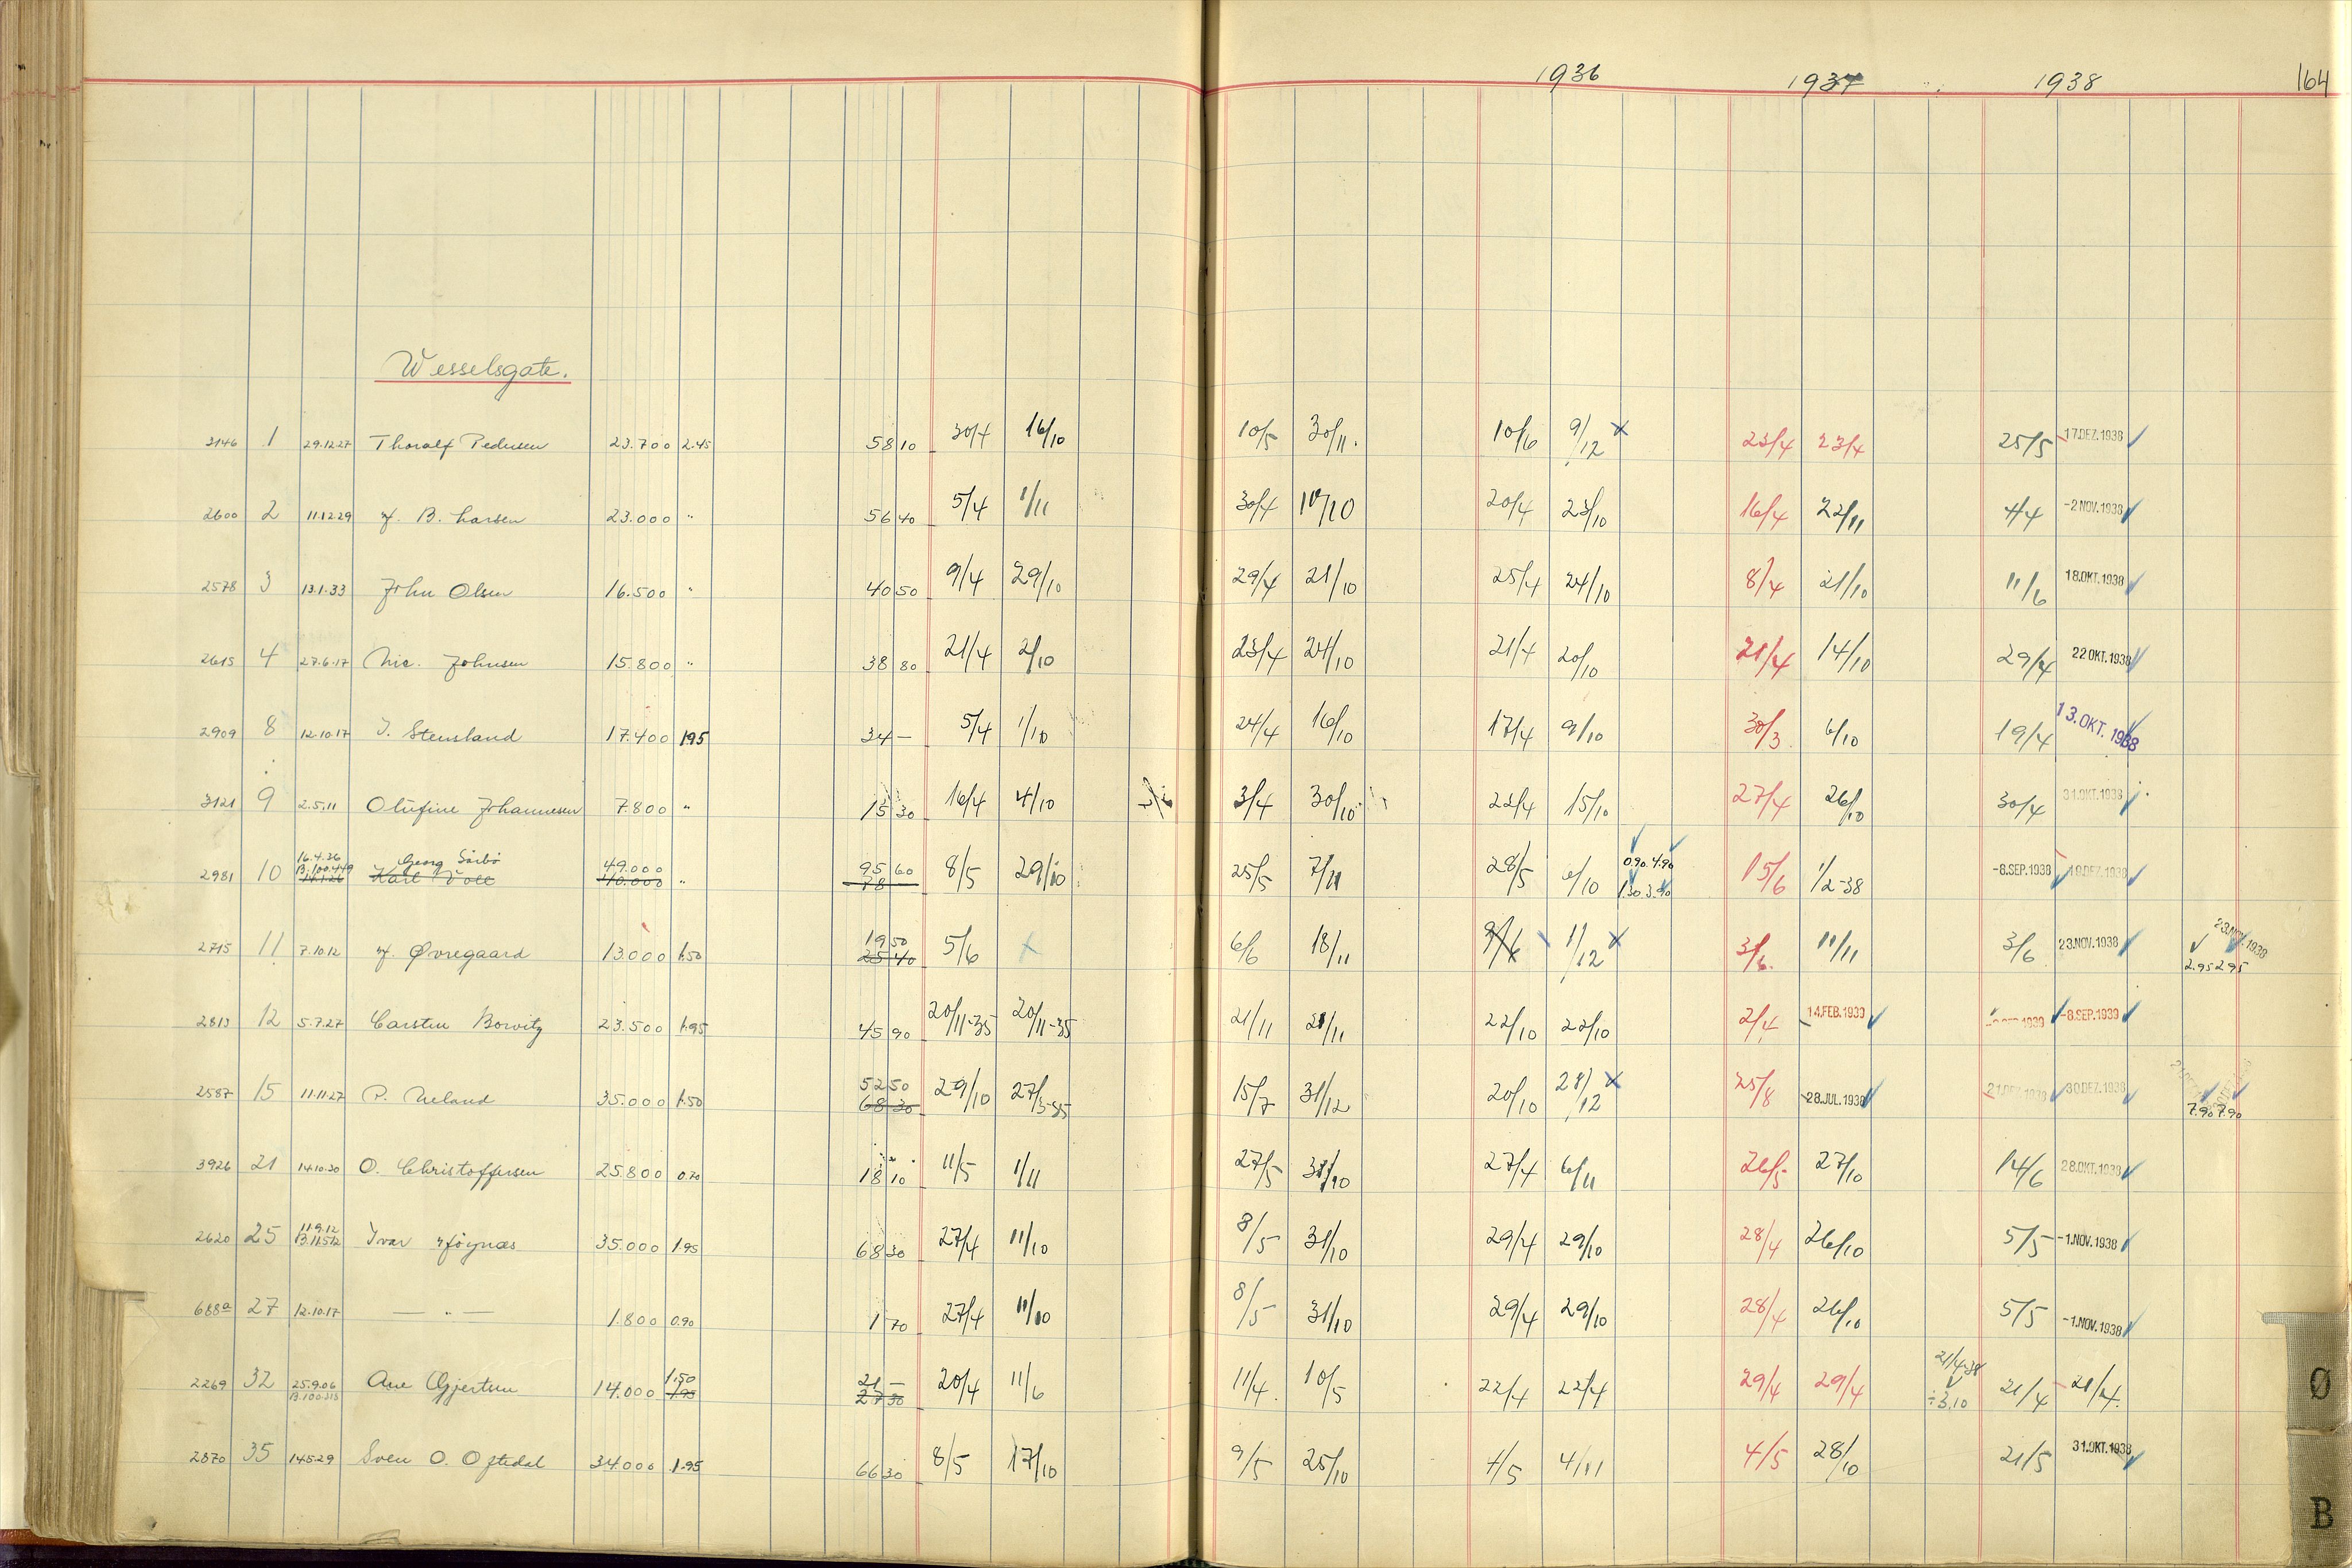 1936 1937 1938 164
Wesselsgate.
3146 1 29.12.27 Thoralf Pedersen 23.700 2.45 58 10 30/4 16/10 10/5 30/11. 10/6 9/12 x 23/4 23/4 25/5 17.DEZ.1938
2600 2 11.12.29 B. Larsen 23.000 " 56 40 5/4 1/11 30/4 10/10 20/4 23/10 16/4 22/11 4/4 -2 NOV.1938
2578 3 13.1.33 John Olsen 16.500 " 40 50 9/4 29/10 29/4 21/10 25/4 24/10 8/4 21/10 11/6 18.OKT.1938
2615 4 27.6.17 Nic. Johnsen 15.800 " 38 80 21/4 2/10 23/4 24/10 21/4 20/10 21/4 14/10 29/4 22 OKT.1938
2909 8 12.10.17 J. Stensland 17.400 1.95 34 — 5/4 1/10 24/4 16/10 17/4 9/10 30/3 6/10 19/4 13.OKT.1938
3121 9 2.5.11 Olufine Johannesen 7.800 " 15 30 16/4 4/10 3/4 30/10 22/4 15/10 27/4 26/10 30/4 31.OKT.1938
16.4.36 Georg Sörbö 49.000 95 60 0.90 4.90
2981 10 B.100.449 14.1.26 Karl Voll 40.000 " 78 8/5 29/10 25/5 7/11 28/5 6/10 1.30 3.90 15/6 1/2-38 -8.SEP.1938 19.DEZ.1938
19 50 23.NOV.1938
2715 11 7.10.12 Øvregaard 13.000 1.50 25 40 5/6 x 6/6 18/11 1/12 x 3/6. 11/11 3/6 23.NOV.1938 2.95 2.95
2813 12 5.7.27 Carsten Borvitz 23.500 1.95 45 90 20/11-35 20/11-35 21/11 21/11 22/10 22/10 2/4 14.FEB.1939 -8.SEP.1939
52 50
2587 15 11.11.27 P. Ueland 35.000 1.50 68 30 29/10 27/3-35 15/7 31/12 20/10 28/12 x 25/8 28.JUL.1938 21.DEZ.1938 30.DEZ.1938 7.90 7.90
3926 21 14.10.30 O. Christoffersen 25.800 0.70 18 10 11/5 1/11 27/5 31/10 27/4 6/11 26/5 27/10 14/6 28.OKT.1938
2620 25 11.9.12 B.11.512 Ivar Høynæs 35.000 1.95 68 30 27/4 11/10 8/5 31/10 29/4 29/10 28/4 26/10 5/5 -1.NOV.1938
688a 27 12.10.17 — " — 1.800 0.90 1 70 27/4 11/10 8/5 31/10 29/4 29/10 28/4 26/10 5/5 -1.NOV.1938
1.50 21 — 21/4-38
2269 32 25.9.06 B.100.313 Ane Gjertsen 14.000 1.95 27 30 20/4 11/6 11/4. 10/5 22/4 22/4 29/4 29/4 ÷3.10 21/4 21/4.
2870 35 14.5.29 Sven O. Oftedal 34.000 1.95 66 30 8/5 17/10 9/5 25/10 4/5 4/11 4/5 28/10 21/5 31.OKT.1938
Ø
B